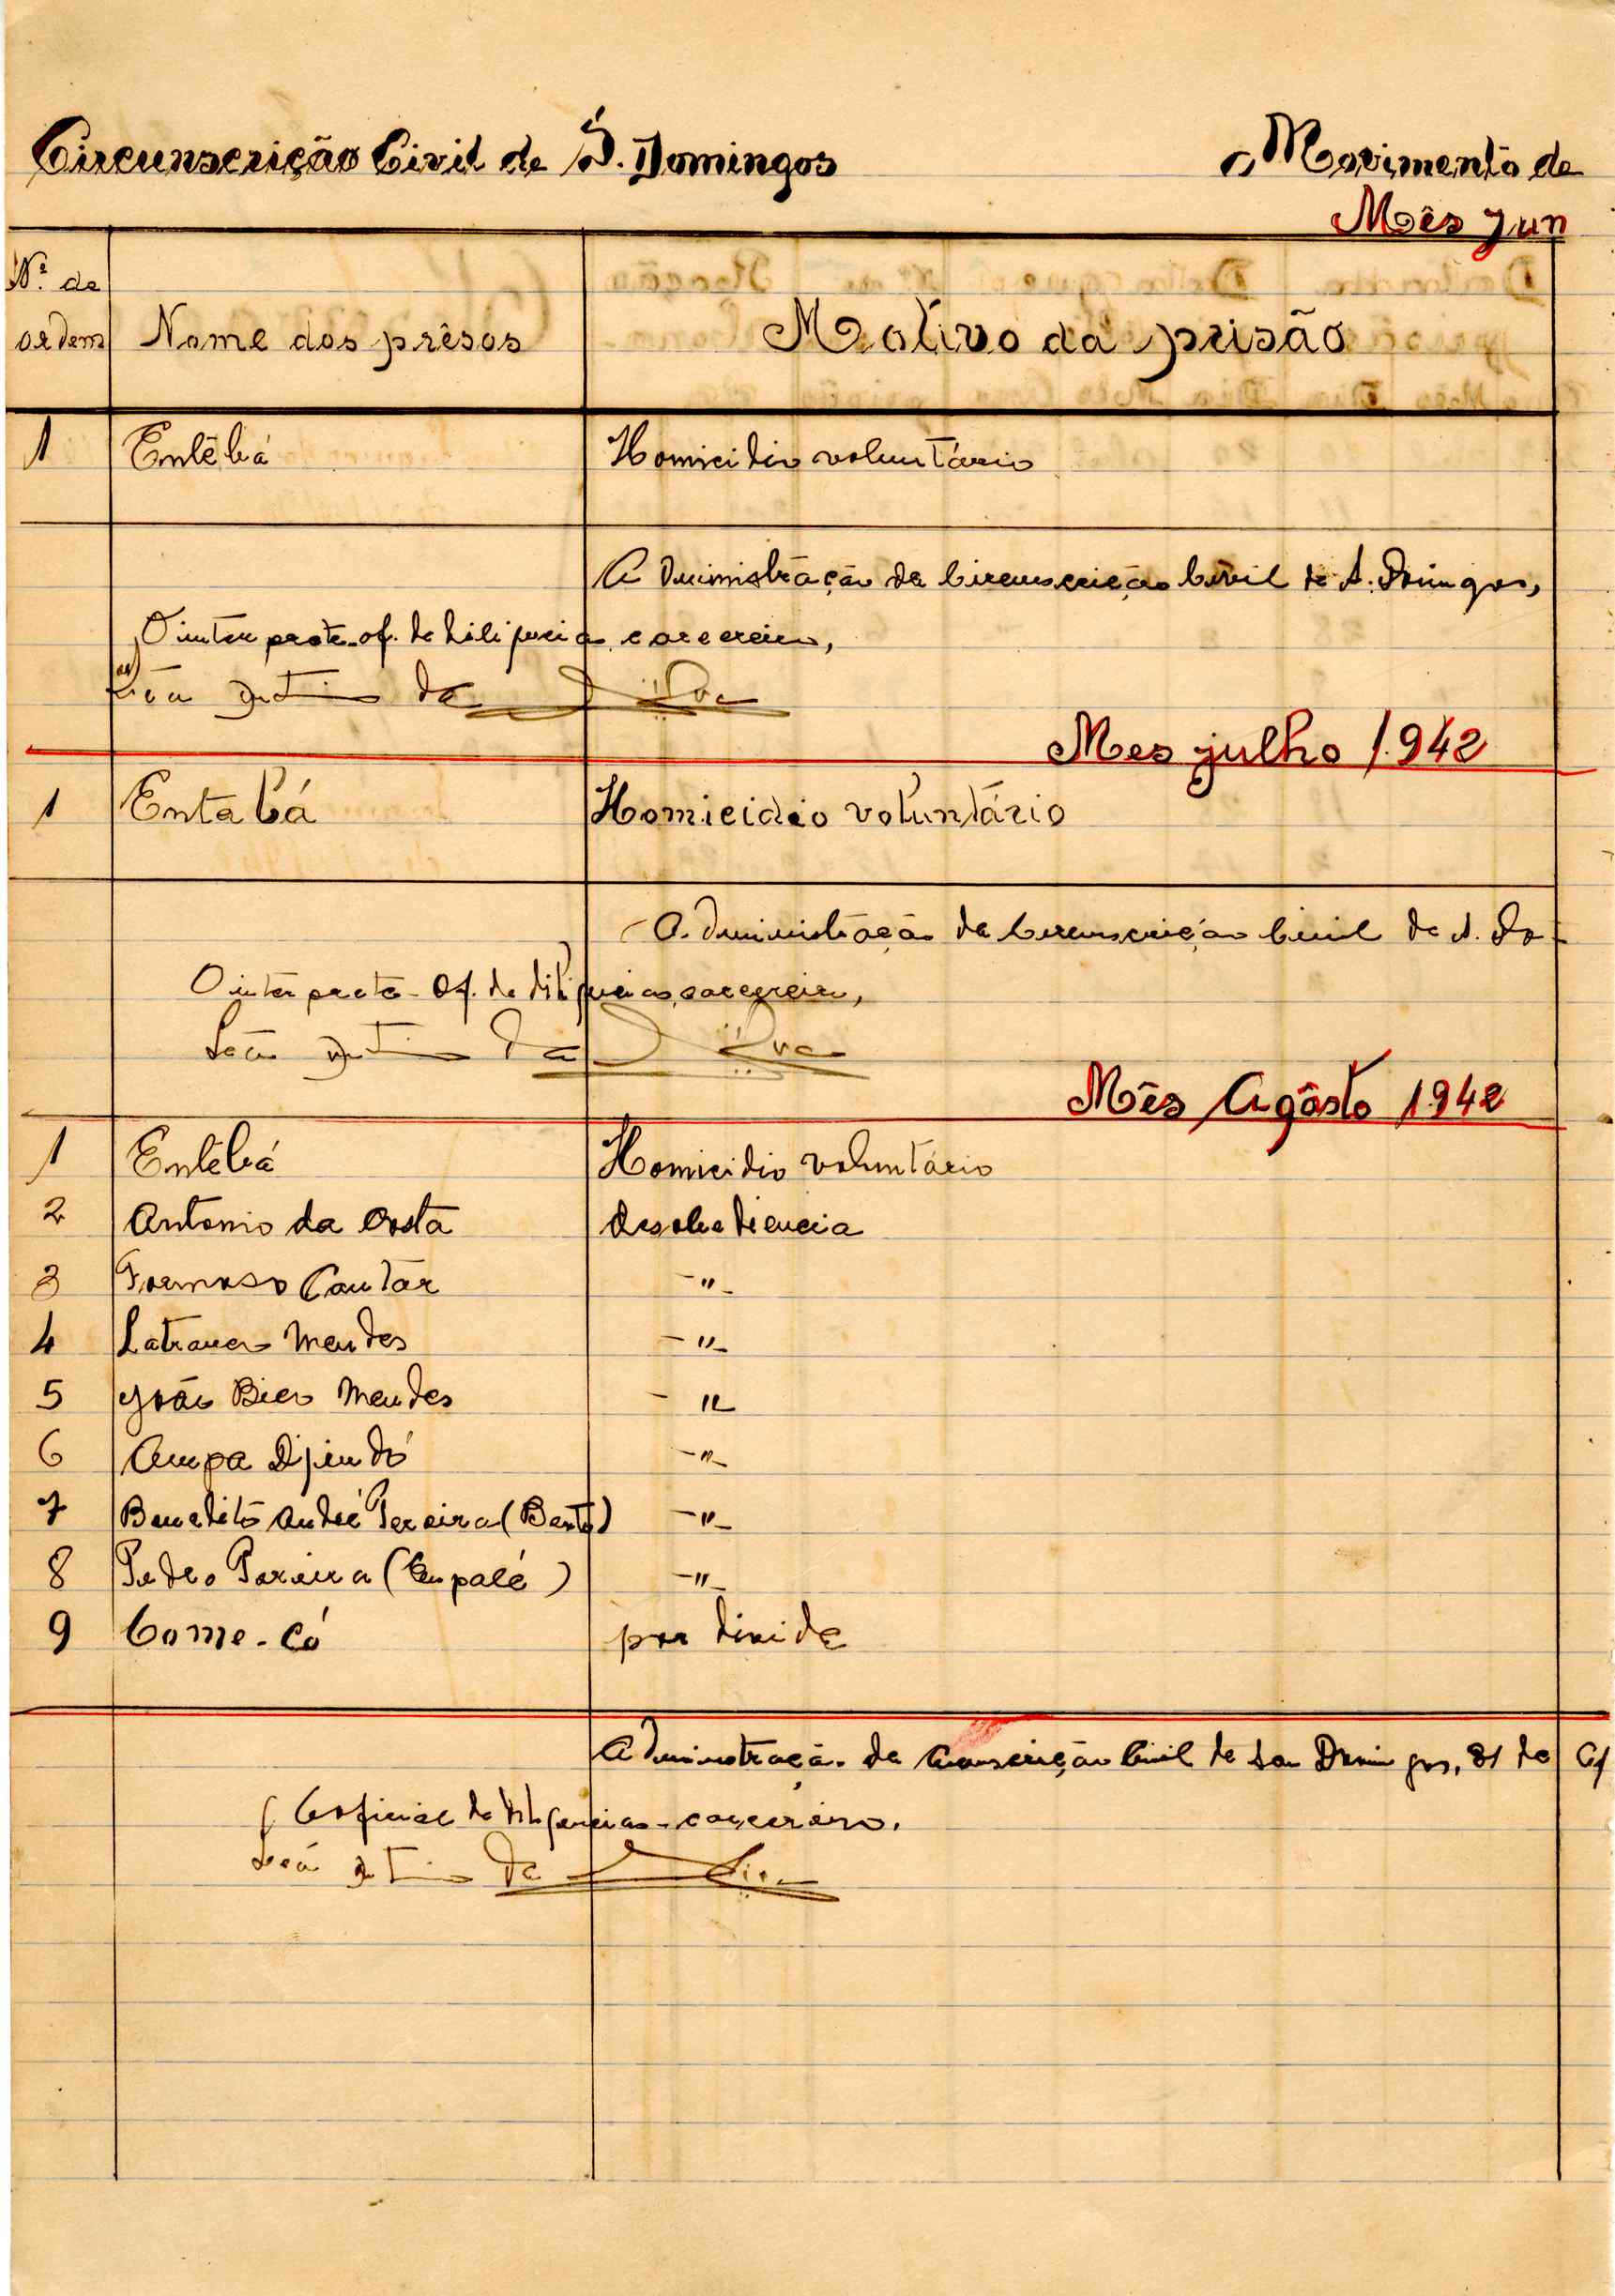 Circunscrição Civil de S. Domingos Movimento de
Mês Jun
N.º de ordem Nome dos prêsos Motivo da prisão
1 Entêbá Homicidio voluntário
Administração da Circunscrição Civil de S. Domingos,
O interprete-of. de diligencias carcereiro,
da Silva
Mes julho 1.942
1 Entabá Homicidio voluntário
Administração da Circunscrição Civil de S. Do-
O interprete-Of. de diligencias, carcereiro,
da Silva
Mês Agôsto 1942
1 Entêbá Homicidio voluntário
2 Antonio da Costa desobediencia
3 Formoso Cantar -"-
4 Mendes -"-
5 João Bico Mendes -"-
6 Ampa Djendó -"-
7 Benedito André Pereira (Bento) -"-
8 Pedro Pereira (Empalé) -"-
9 Come-Có por divida
Administração da Circunscrição Civil de São Domingos, 31 de Ag
Oficial de diligencias-carcereiro.
da Silva